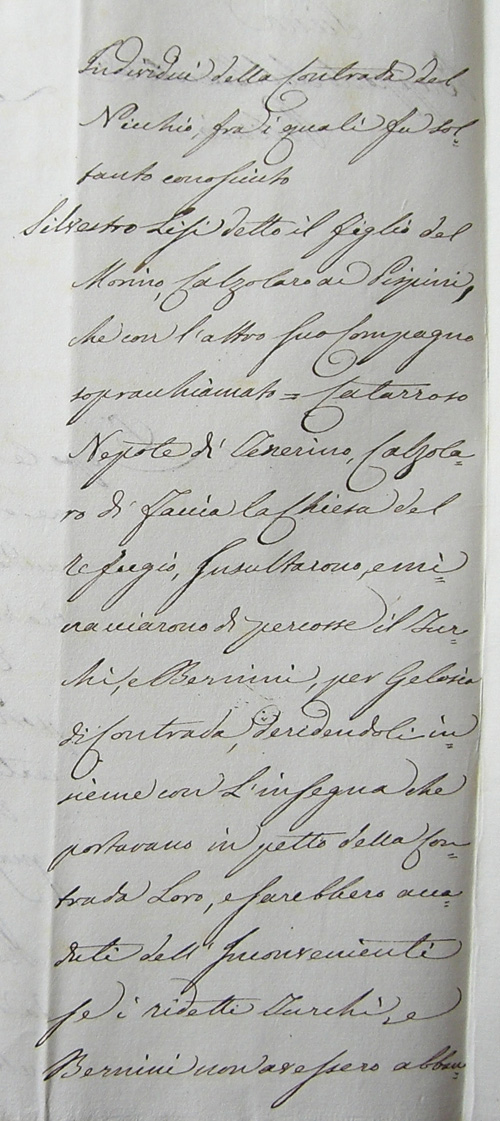 Individui della Contrada del
Nicchio, fra i quali fu sol=
tanto conosciuto
Silvestro Lisi detto il figlio del
Morino, Calzolaro ai Pispini,
che con l'altro suo Compagno
sopracchiamato = Catarroso
Nepote di Tenerino, Calzola=
ro di faccia la Chiesa del
refugio, Insultarono, e mi=
nacciarono di percosse il Tur=
chi, e Bernini, per Gelosia
di Contrada, deridendoli in=
sieme con L'insegna che
portavano in petto della Con=
trada Loro, e sarebbero acca=
duti dell'Inconvenienti
se i ridetti Turchi, e
Bernini non avessero abban=